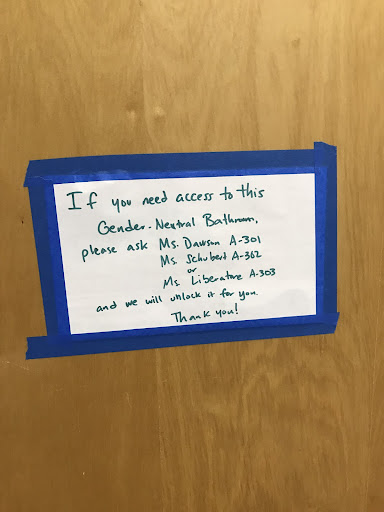 If you need access to this
Gender-Neutral Bathroom,
please ask Ms. Dawson A-301
Ms. Schubert A-302
or
Ms. Liberatore A-303
and we will unlock it for you.
Thank you!